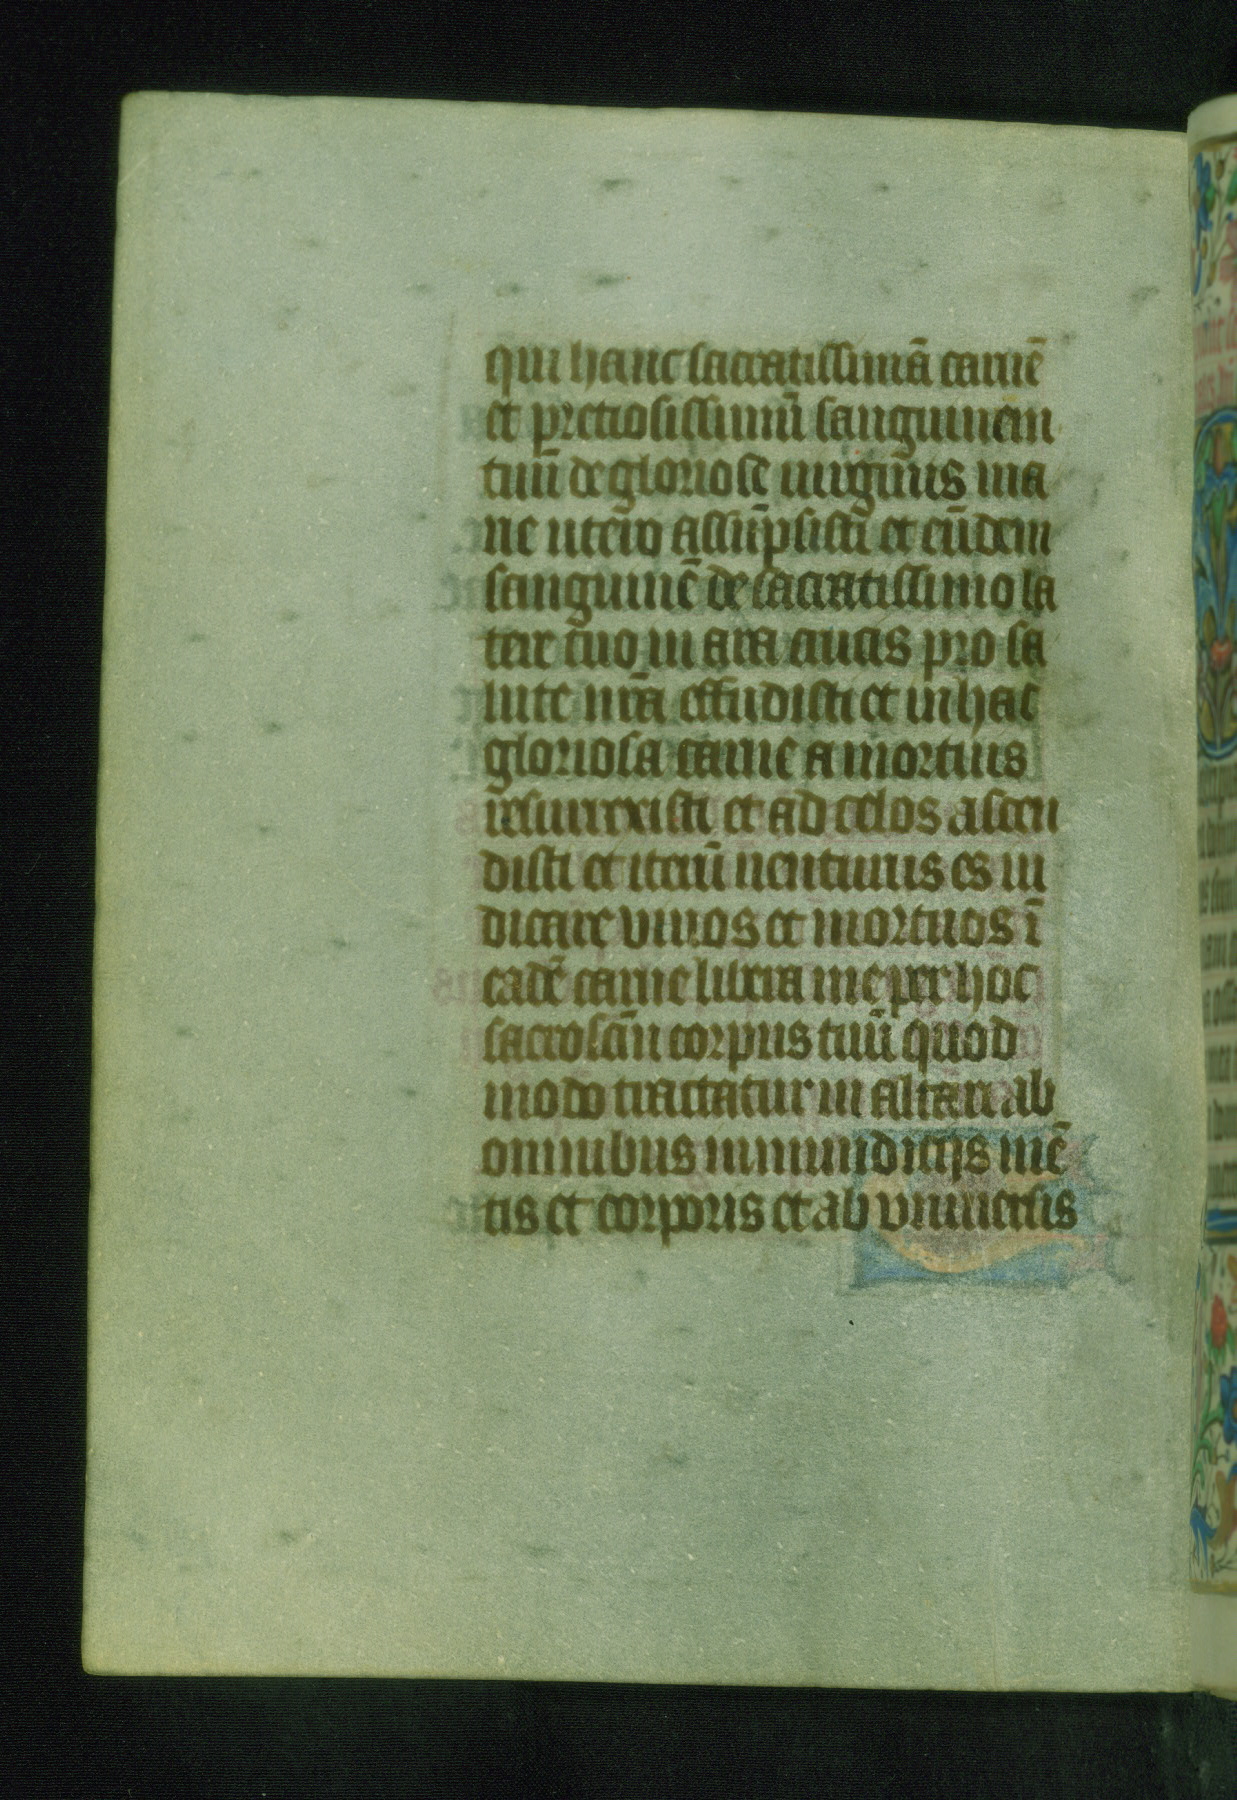 qui hanc sacratissimā carnē
et preciosissimū sanguinem
tuū de gloriose uirginis ma
rie utero assūpsisti et eūdem
sanguinē de sacratissimo la
tere tuo in ara crucis pro sa
lute nr̄a effudisti et in hac
gloriosa carne a mortuis
resurrexisti et ad celos ascen
disti et iterū uenturus es iu
dicare vivos et mortuos ī
eadē carne libera me per hoc
sacrosc̄m corpus tuū quod
modo tractatur in altari ab
omnibus inmundicijs mē
tis et corporis et ab vniuersis